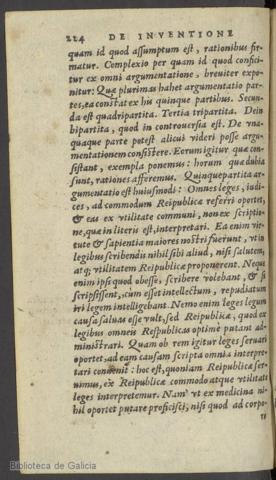 224 DE INVENTIONE
quam id quod assumptum est, rationibus fir-
matur. Complexio per quam id quod confici-
tur ex omni argumentatione, breuiter expo-
nitur: Quæ plurimas habet argumentatio par-
tes, ea constat ex his quinque partibus. Secun-
da est quadripartita. Tertia tripartita. Dein
bipartita, quod in controuersia est. De vna-
quaque parte potest alicui videri posse argu-
mentationem consistere. Eorum igitur quæ con-
sistant, exempla ponemus: horum quæ dubia
sunt, rationes afferemus. Quinquepartita ar-
gumentatio est huiusmodi: Omnes leges, iudi-
ces, ad commodum Reipublicæ referri oportet,
& eas ex vtilitate communi, non ex scriptio-
ne, quæ in literis est, interpretari. Ea enim vir-
tute & sapientia maiores nostri fuerunt, vt in
legibus scribendis nihil sibi aliud, nisi salutem,
atq; vtilitatem Reipublicæ proponerent. Neque
enim ipsi quod obesset, scribere volebant, & si
scripsissent, cum esset intellectum, repudiatum
iri legem intelligebant. Nemo enim leges legum
causa saluas esse vult, sed Reipublicæ, quod ex
legibus omneis Respublicas optimè putant ad-
ministrari. Quam ob rem igitur leges seruari
oportet, ad eam causam scripta omnia interpre-
tari conuenit: hoc est, quoniam Reipublicæ ser-
uimus, ex Reipublicæ commodo atque vtilitate
leges interpretemur. Nam vt ex medicina ni-
hil oportet putare proficisci, nisi quod ad corpo-
Biblioteca de Galicia